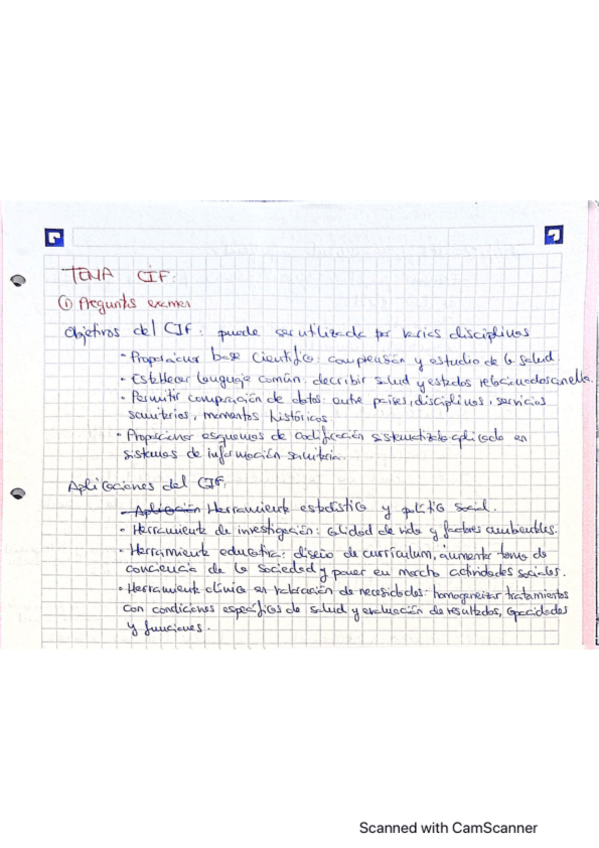 TEMA CIF:
① Preguntas examen
Objetivos del CIF: puede ser utilizada por varias disciplinas
· Proporcionar base científica: comprensión y estudio de la salud.
· Establecer lenguaje común: describir salud y estados relacionados con ella.
· Permitir comparación de datos: entre países, disciplinas, servicios
sanitarios, momentos históricos
· Proporcionar esquemas de codificación sistematizado aplicado en
sistemas de información sanitaria.
Aplicaciones del CIF:
- Aplicación Herramienta estadística y política social.
· Herramienta de investigación: calidad de vida y factores ambientales.
· Herramienta educativa: diseño de curriculum, aumentar toma de
conciencia de la sociedad y poner en marcha actividades sociales.
· Herramienta clínica en valoración de necesidades: homogeneizar tratamientos
con condiciones específicas de salud y evaluación de resultados, capacidades
y funciones.
Scanned with CamScanner